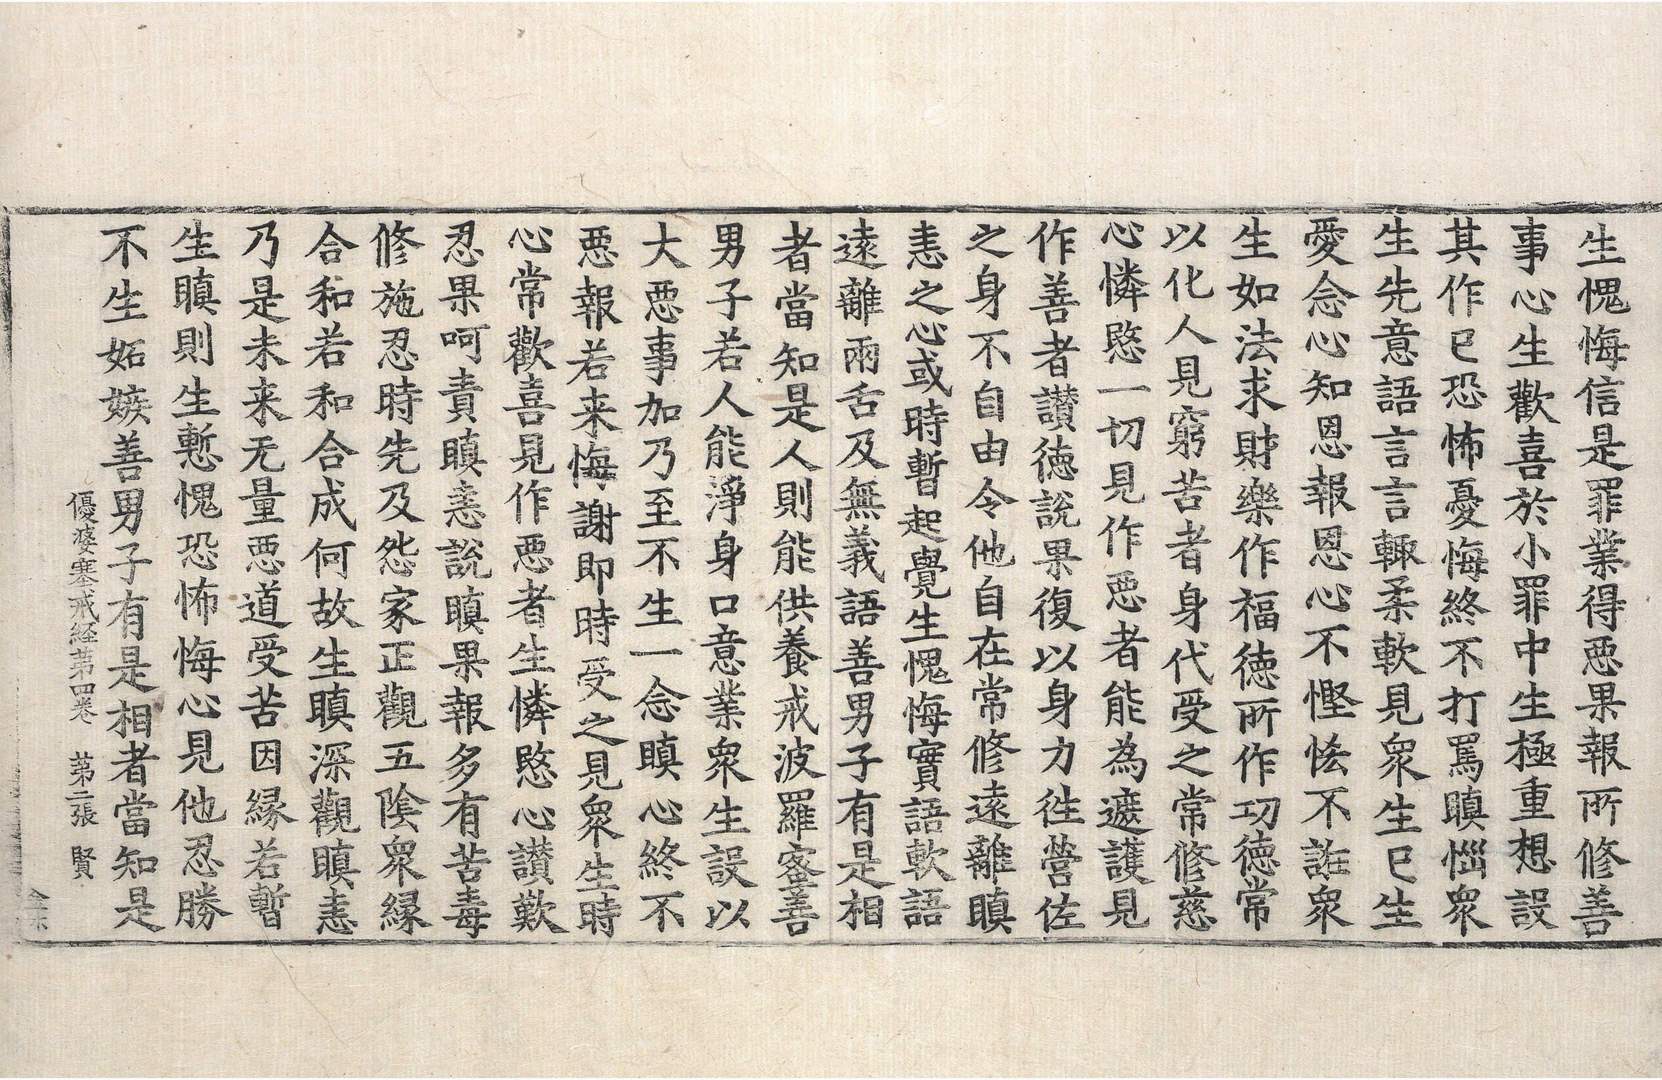 生愧悔信是罪業得惡果報所修善
事心生歡喜於小罪中生極重想設
其作已恐怖憂悔終不打罵瞋惱衆
生先意語言言輙柔軟見衆生已生
愛念心知恩報恩心不慳悋不誑衆
生如法求財樂作福徳所作功徳常
以化人見窮苦者身代受之常修慈
心憐愍一切見作惡者能為遮護見
作善者讃徳說果復以身力往營佐
之身不自由令他自在常修遠離瞋
恚之心或時暫起覺生愧悔實語軟語
遠離兩舌及無義語善男子有是相
者當知是人則能供養戒波羅蜜善
男子若人能淨身口意業衆生設以
大惡事加乃至不生一念瞋心終不
惡報若来悔謝即時受之見衆生時
心常歡喜見作惡者生憐愍心讃歎
忍果呵責瞋恚說瞋果報多有苦毒
修施忍時先及怨家正觀五陰衆縁
合和若和合成何故生瞋深觀瞋恚
乃是未来无量惡道受苦因縁若暫
生瞋則生慙愧恐怖悔心見他忍勝
不生妬嫉善男子有是相者當知是
優婆塞戒経第四卷 第二張 賢